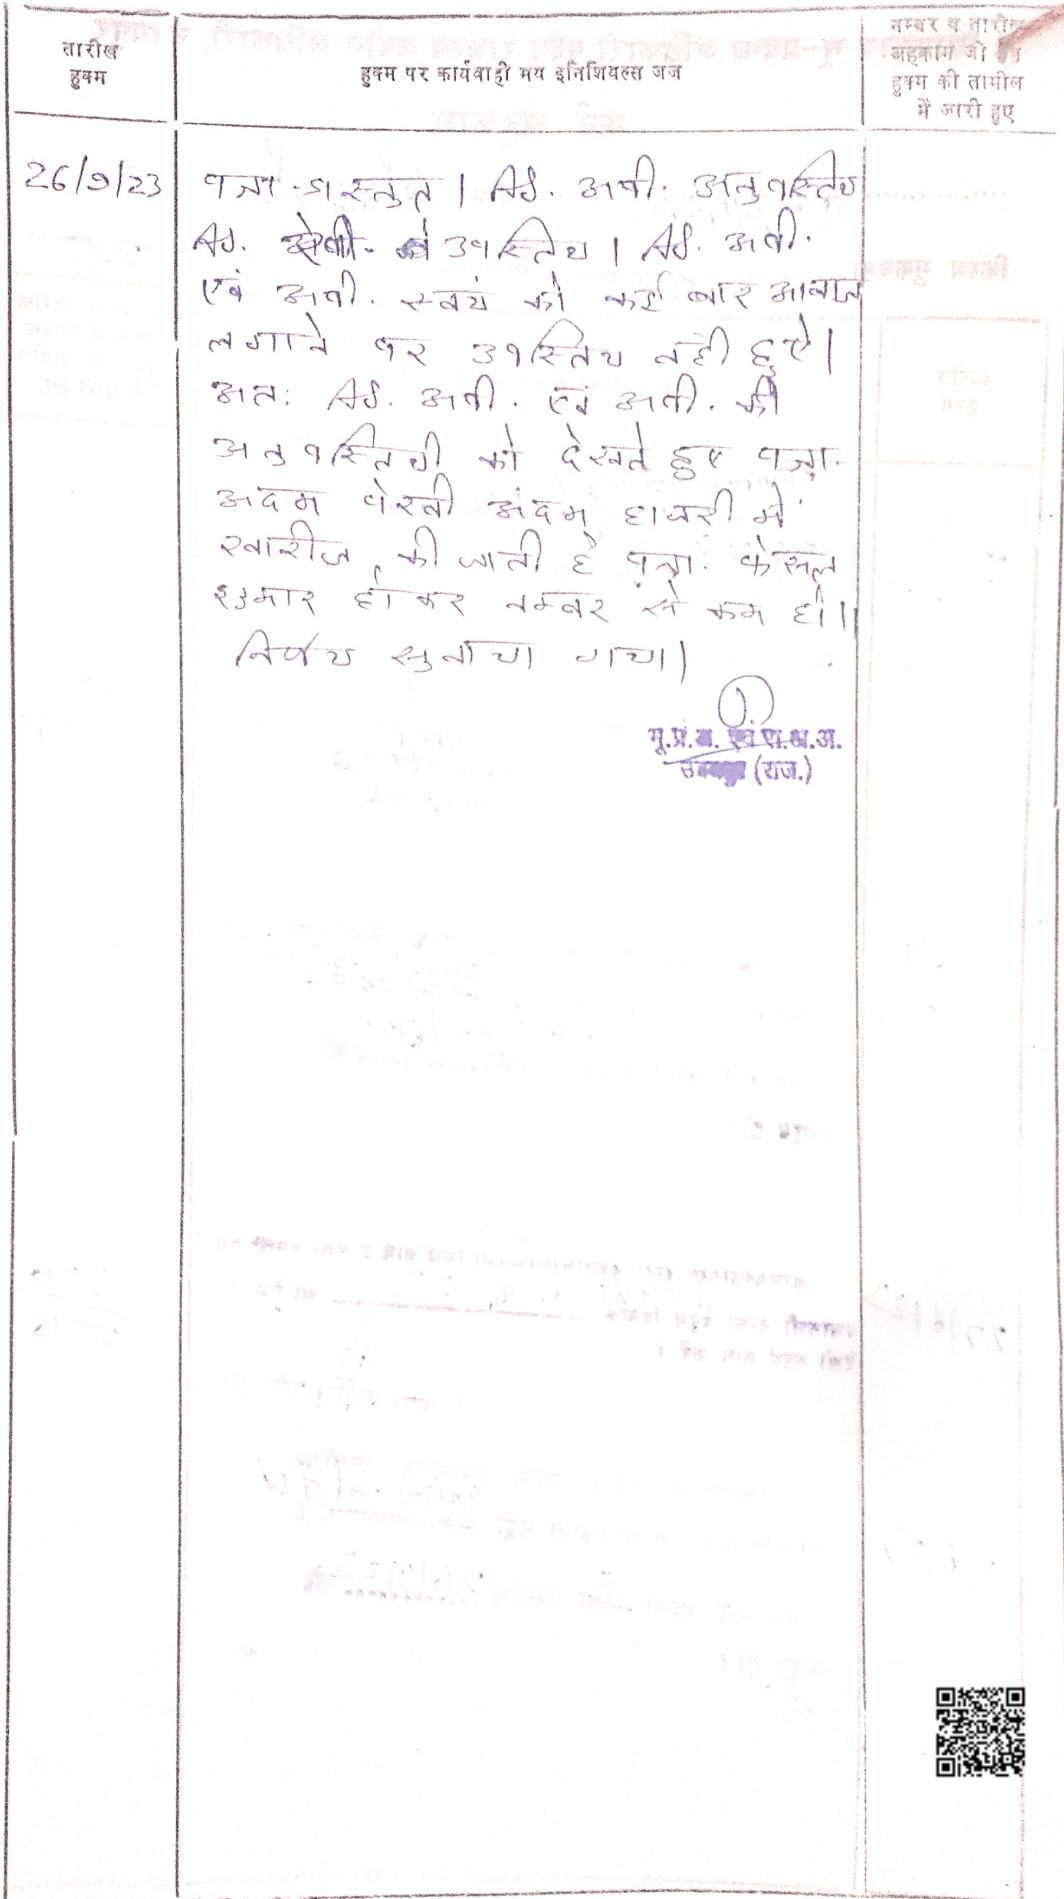 तारीख
हुक्म
हुक्म पर कार्यवाही मय इनिशियल्स जज
नम्बर व तारीख
अहकाम जो
हुक्म की तामील
में जारी हुए
26/9/23
पत्रा. प्रस्तुत। Ad. अपी. अनुपस्तिथ
Ad. रेस्पो. उपस्तिथ। Ad. अपी.
एवं अपी. स्वयं को कई बार आवाज
लगाने पर उपस्तिथ नही हुऐ।
अतः Ad. अपी. एवं अपी. की
अनुपस्तिथी को देखते हुए पत्रा.
अदम पेरवी अदम हाजरी में
खारीज की जाती है पत्रा. फेसल
शुमार होकर नम्बर से कम हो।
निर्णय सुनाया गया।
भू.प्र.अ. एवं रा.अ.अ.
(राज.)